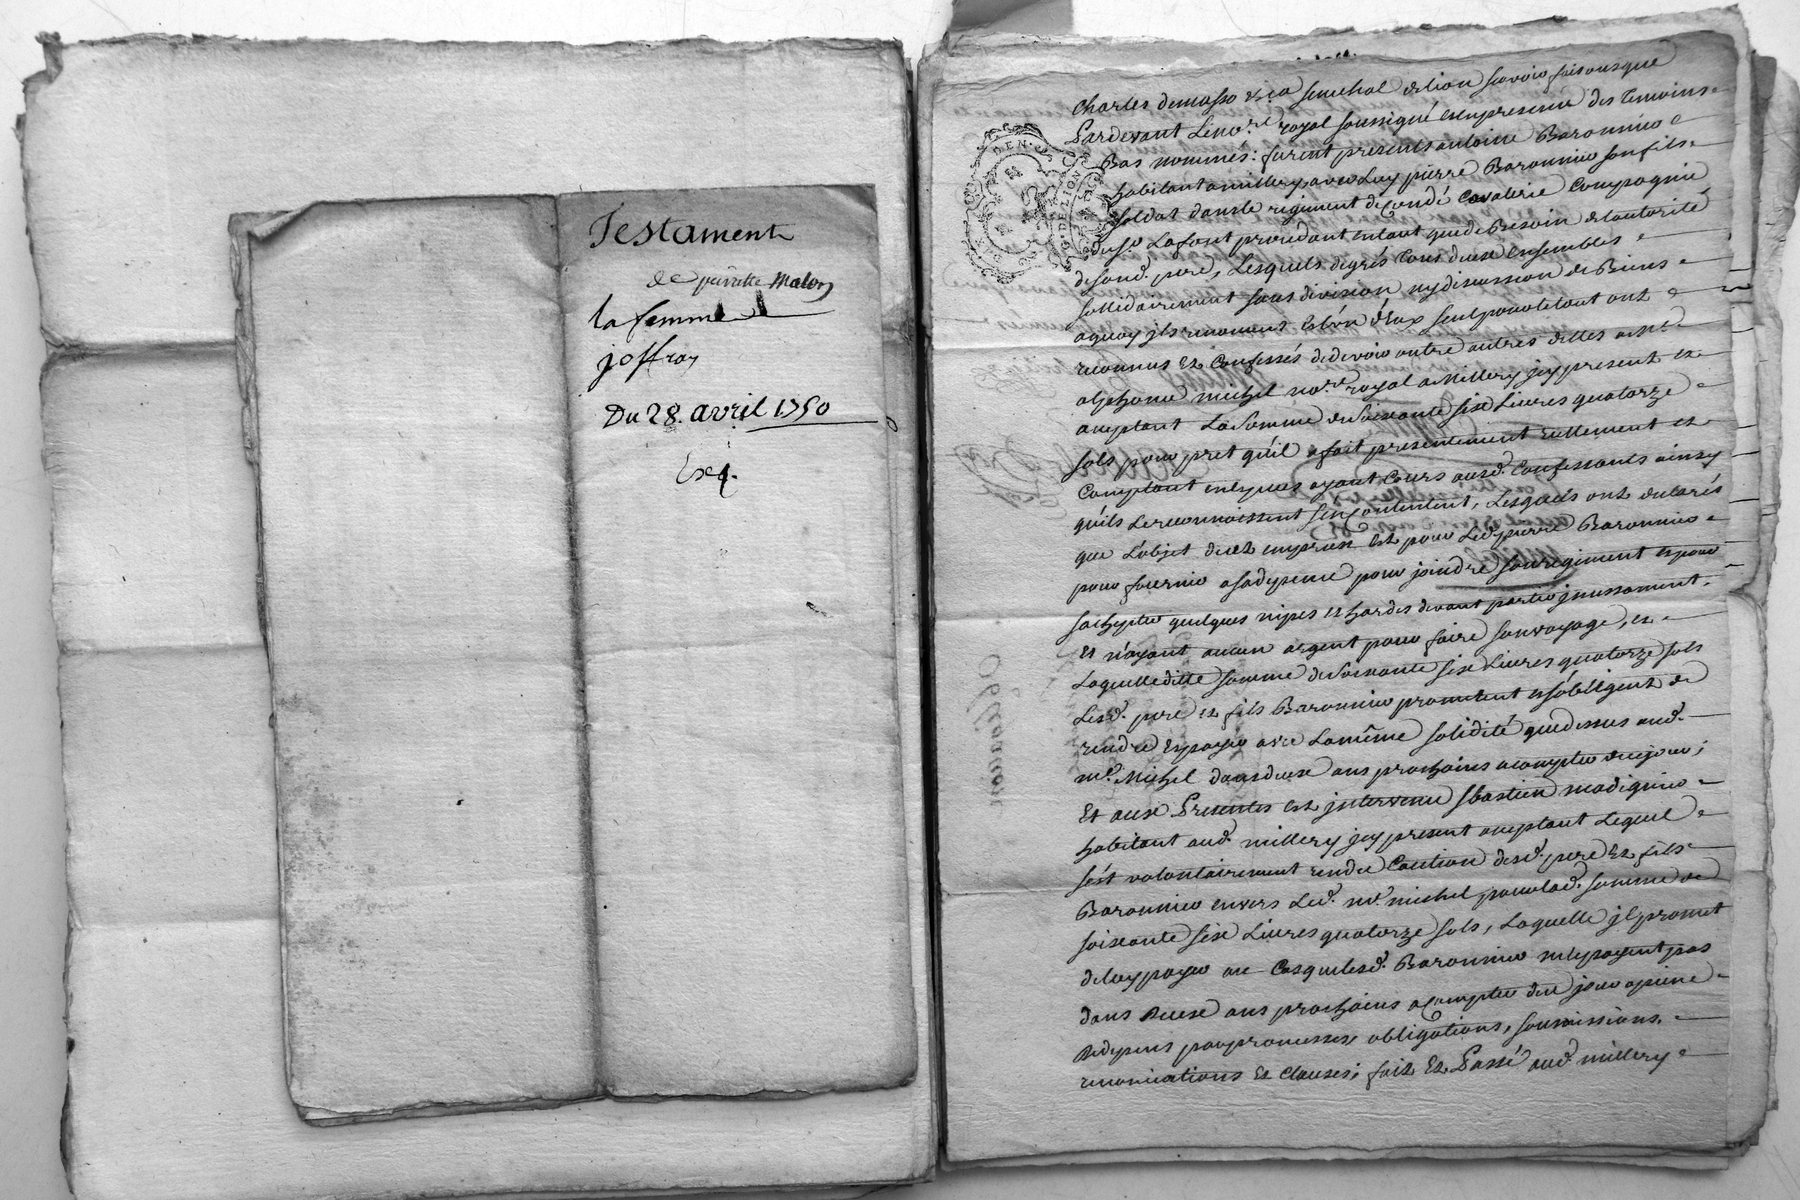 Testament
de pierrette Malon
la femme
joffray
Du 28. avril 1750
Exq.
GEN. DE LION
Charles demasso &ca senechal de lion savoir faisons que
Pardevant Le nore. royal soussigné et en presence des temoins
Bas nommés: furent presents antoine Baronnier
habitant a millery avec Luy pierre Baronnier son fils
soldat dans le regiment de Condé Cavalerie Compagnie
du sr Lafont procedant entant que de Besoin de l'autorité
de sond. pere, Lesquels de grés tous deux ensembles
sollidairement sans division ny discussion de Biens
a quoy jls renoncent et l'un d'Eux seul pour le tout ont
reconnus Et Confessés de devoir entre autres dettes a Me
michel nore. royal a Millery jcy present et
acceptant La somme de soixante six Livres quatorze
sols pour pret qu'il a fait presentement reellement et
Comptant en especes ayant Cours ausd. Confessants ainsy
qu'ils Le reconnoissent s'en Contentent, Lesquels ont declarés
que L'objet du et emprest est pour Led. pierre Baronnier
pour fournir a sa depense pour joindre son regiment et pour
s'achepter quelques nipes et hardes devant partir jncessament
Et n'ayant aucun argent pour faire son voyage, et
Laquelle ditte somme de soixante six Livres quatorze sols
Lesd. pere et fils Baronnier promettent et s'obligent de
rendre et payer avec La même solidité que dessus aud.
me. Michel dans deux ans prochains a compter de ce jour;
Et aux Presentes est jntervenu sbastien madignier
habitant aud. millery jcy present acceptant Lequel
s'est volontairement rendu Caution desd. pere et fils
Baronnier envers Led. me. michel pour lad. somme de
soixante six Livres quatorze sols, Laquelle jl promet
de luy payer au Cas que lesd. Baronnier ne le payent pas
dans Deux ans prochains a compter de ce jour a peine
de depens par promesses, obligations, soumissions,
renonciations Et Clauses; fait Et Passé aud. millery